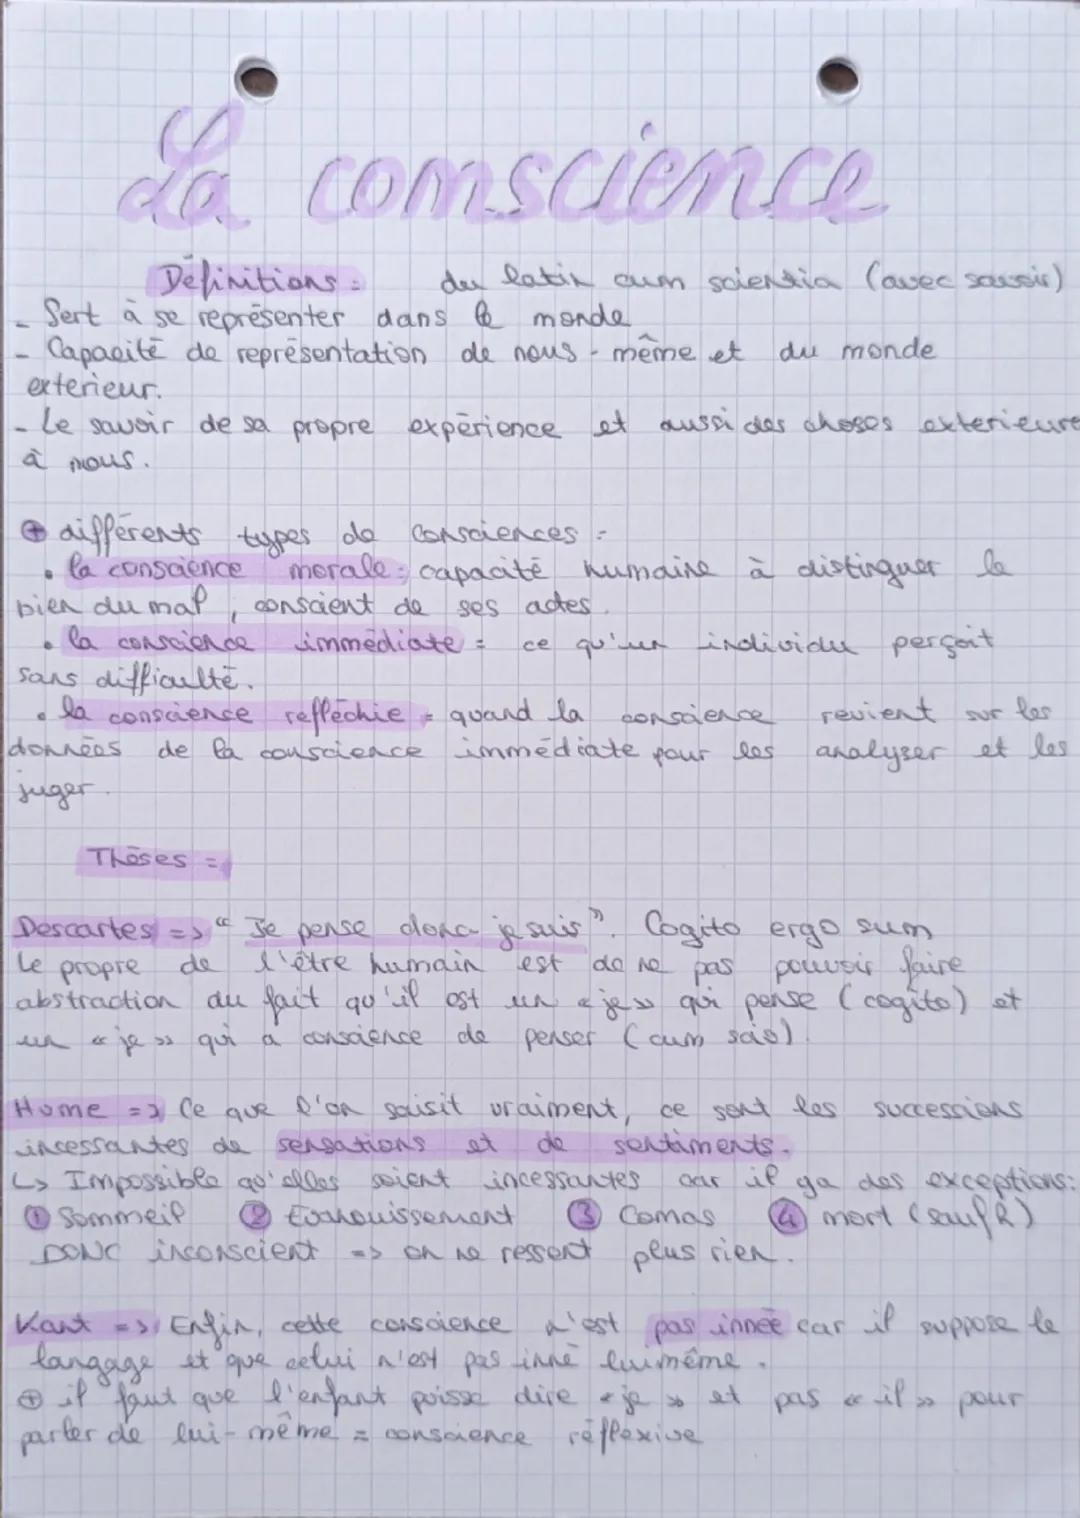 La conscience
Définitions : du latin cum scientia (avec savoir)
- Sert à se représenter dans le monde
- Capacité de représentation de nous-même et du monde
exterieur.
- Le savoir de sa propre expérience et aussi des choses exterieure
à nous.
⊕ différents types de consciences :
• la conscience morale : capacité humaine à distinguer le
bien du mal, conscient de ses actes.
• la conscience immédiate = ce qu'un individu perçoit
sans difficulté.
• la conscience refléchie = quand la conscience revient sur les
données de la conscience immédiate pour les analyser et les
juger.
Thèses =
Descartes => " Je pense donc je suis ". Cogito ergo sum
Le propre de l'être humain est de ne pas pouvoir faire
abstraction du fait qu'il est un « je » qui pense (cogito) et
un « je » qui a conscience de penser (cum scio).
Hume => Ce que l'on saisit vraiment, ce sont les successions
incessantes de sensations et de sentiments.
↳ Impossible qu'elles soient incessantes car il ya des exceptions:
① Sommeil ② Evanouissement ③ Comas ④ mort (sauf R)
DONC inconscient => on ne ressent plus rien.
Kant => Enfin, cette conscience n'est pas innée car il suppose le
langage et que celui n'est pas inné lui même.
⊕ il faut que l'enfant puisse dire « je » et pas « il » pour
parler de lui-même = conscience réflexive